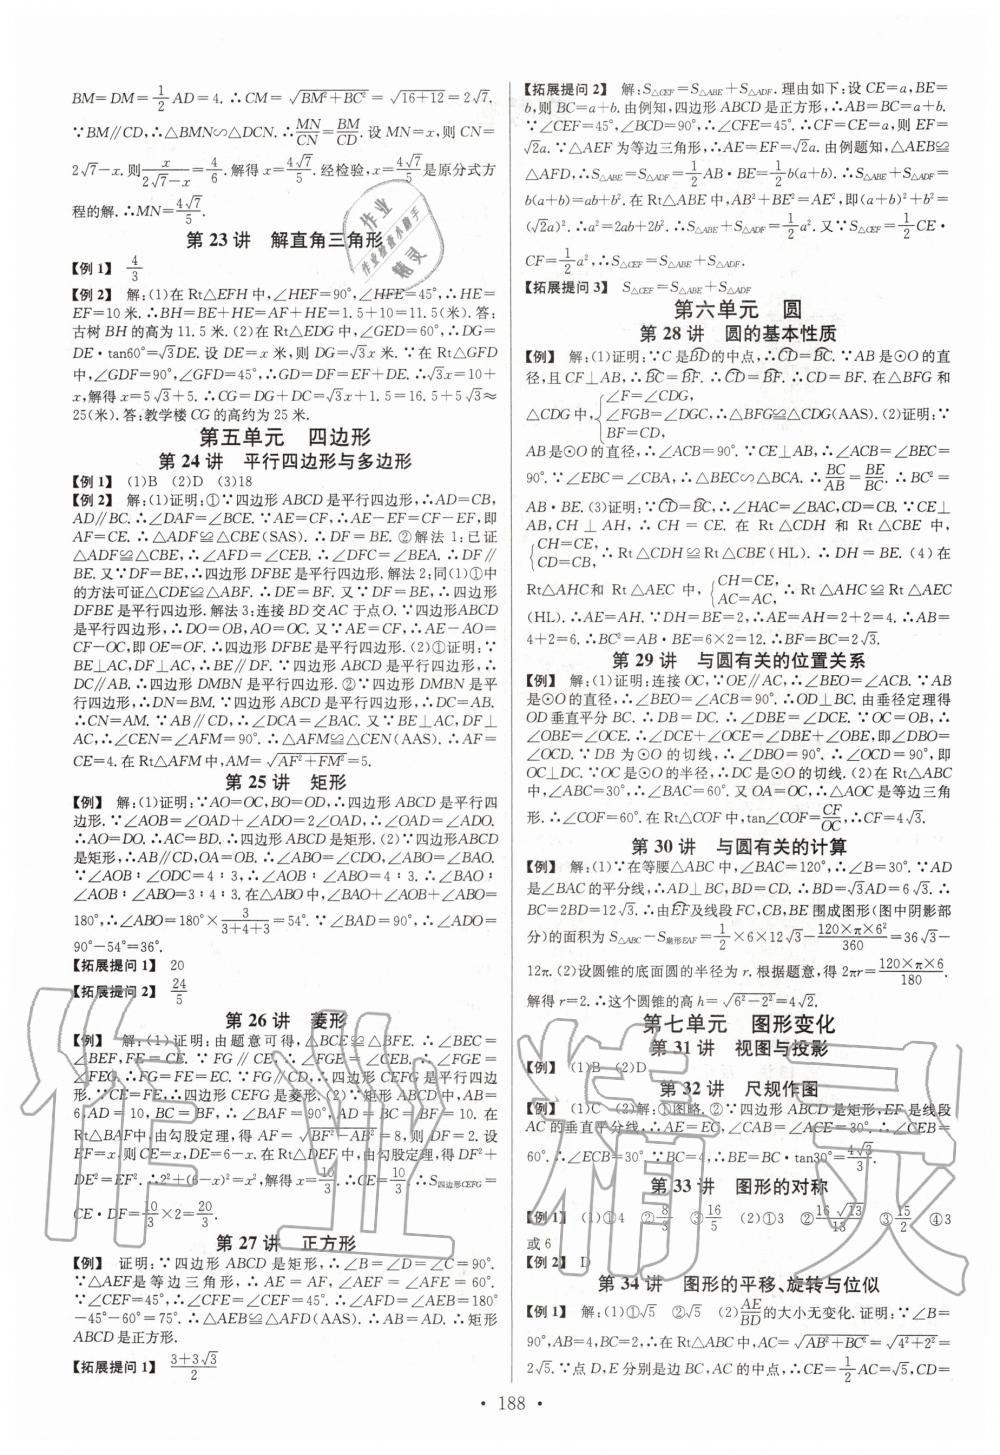 BM=DM=1/2AD=4.∴CM=√(BM²+BC²)=√(16+12)=2√7.
∵BM∥CD,∴△BMN∽△DCN.∴MN/CN=BM/CD.设MN=x,则CN=
2√7-x.则x/(2√7-x)=4/6.解得x=4√7/5.经检验,x=4√7/5是原分式方
程的解.∴MN=4√7/5.
第23讲 解直角三角形
【例1】 4/3
【例2】 解:(1)在Rt△EFH中,∠HEF=90°,∠HFE=45°,∴HE=
EF=10米.∴BH=BE+HE=AF+HE=1.5+10=11.5(米).答:
古树BH的高为11.5米.(2)在Rt△EDG中,∠GED=60°,∴DG=
DE·tan60°=√3DE.设DE=x米,则DG=√3x米.在Rt△GFD
中,∠GDF=90°,∠GFD=45°,∴GD=DF=EF+DE.∴√3x=10+
x,解得x=5√3+5.∴CG=DG+DC=√3x+1.5=16.5+5√3≈
25(米).答:教学楼CG的高约为25米.
第五单元 四边形
第24讲 平行四边形与多边形
【例1】 (1)B (2)D (3)18
【例2】 解:(1)证明:①∵四边形ABCD是平行四边形,∴AD=CB,
AD∥BC.∴∠DAF=∠BCE.∵AE=CF,∴AE-EF=CF-EF,即
AF=CE.∴△ADF≌△CBE(SAS).∴DF=BE.②解法1:已证
△ADF≌△CBE,∴∠AFD=∠CEB.∴∠DFC=∠BEA.∴DF∥
BE.又∵DF=BE,∴四边形DFBE是平行四边形.解法2:同(1)①中
的方法可证△CDE≌△ABF.∴DE=BF.又∵DF=BE,∴四边形
DFBE是平行四边形.解法3:连接BD交AC于点O.∵四边形ABCD
是平行四边形,∴DO=OB,AO=OC.又∵AE=CF,∴AE-AO=
CF-OC,即OE=OF.∴四边形DFBE是平行四边形.(2)①证明:∵
BE⊥AC,DF⊥AC,∴BE∥DF.∵四边形ABCD是平行四边形,∴
DC∥AB.∴四边形DMBN是平行四边形.②∵四边形DMBN是平行
四边形,∴DN=BM.∵四边形ABCD是平行四边形,∴DC=AB.
∴CN=AM.∵AB∥CD,∴∠DCA=∠BAC.又∵BE⊥AC,DF⊥
AC,∴∠CEN=∠AFM=90°.∴△AFM≌△CEN(AAS).∴AF=
CE=4.在Rt△AFM中,AM=√(AF²+FM²)=5.
第25讲 矩形
【例】 解:(1)证明:∵AO=OC,BO=OD,∴四边形ABCD是平行四
边形.∵∠AOB=∠OAD+∠ADO=2∠OAD,∴∠OAD=∠ADO.
∴AO=DO.∴AC=BD.∴四边形ABCD是矩形.(2)∵四边形ABCD
是矩形,∴AB∥CD,OA=OB.∴∠ABO=∠CDO,∠ABO=∠BAO.
∵∠AOB∶∠ODC=4∶3,∴∠AOB∶∠ABO=4∶3.∴∠BAO∶
∠AOB∶∠ABO=3∶4∶3.在△ABO中,∠BAO+∠AOB+∠ABO=
180°,∴∠ABO=180°×3/(3+4+3)=54°.∵∠BAD=90°,∴∠ADO=
90°-54°=36°.
【拓展提问1】 20
【拓展提问2】 24/5
第26讲 菱形
【例】 解:(1)证明:由题意可得,△BCE≌△BFE.∴∠BEC=
∠BEF,FE=CE.∵FG∥CE,∴∠FGE=∠CEB.∴∠FGE=
∠FEG.∴FG=FE=EC.∵FG∥CE,∴四边形CEFG是平行四边
形.∵CE=FE,∴四边形CEFG是菱形.(2)∵矩形ABCD中,AB=
6,AD=10,BC=BF,∴∠BAF=90°,AD=BC=BF=10.在
Rt△BAF中,由勾股定理,得AF=√(BF²-AB²)=8,则DF=2.设
EF=x,则CE=x,DE=6-x.在Rt△DEF中,由勾股定理,得DF²+
DE²=EF².∴2²+(6-x)²=x²,解得x=10/3.∴CE=10/3.∴S四边形CEFG=
CE·DF=10/3×2=20/3.
第27讲 正方形
【例】 证明:∵四边形ABCD是矩形,∴∠B=∠D=∠C=90°.
∵△AEF是等边三角形,∴AE=AF,∠AEF=∠AFE=60°.
∵∠CEF=45°,∴∠CFE=∠CEF=45°.∴∠AFD=∠AEB=180°
-45°-60°=75°.∴△AEB≌△AFD(AAS).∴AB=AD.∴矩形
ABCD是正方形.
【拓展提问1】 (3+3√3)/2
【拓展提问2】 解:S△CEF=S△ABE+S△ADF.理由如下:设CE=a,BE=
b,则BC=a+b.由例知,四边形ABCD是正方形,∴AB=BC=a+b.
∵∠CEF=45°,∠BCD=90°,∴∠CFE=45°.∴CF=CE=a,则EF=
√2a.∵△AEF为等边三角形,∴AE=EF=√2a.由例题知,△AEB≌
△AFD,∴S△ABE=S△ADF=1/2AB·BE=1/2b(a+b).∴S△ABE+S△ADF=
b(a+b)=ab+b².在Rt△ABE中,AB²+BE²=AE²,即(a+b)²+b²=
(√2a)².∴a²=2ab+2b².∴S△ABE+S△ADF=1/2a².又∵S△CEF=1/2CE·
CF=1/2a²,∴S△CEF=S△ABE+S△ADF.
【拓展提问3】 S△CEF=S△ABE+S△ADF
第六单元 圆
第28讲 圆的基本性质
【例】 解:(1)证明:∵C是BD的中点,∴CD=BC.∵AB是⊙O的直
径,且CF⊥AB,∴BC=BF.∴CD=BF.∴CD=BF.在△BFG和
△CDG中,{∠F=∠CDG, ∠FGB=∠DGC, BF=CD, ∴△BFG≌△CDG(AAS).(2)证明:∵
AB是⊙O的直径,∴∠ACB=90°.∵CE⊥AB,∴∠ACB=∠BEC=
90°.∵∠CBE=∠CBA,∴△BEC∽△BCA.∴BC/AB=BE/BC.∴BC²=
AB·BE.(3)证明:∵CD=BC,∴∠HAC=∠BAC,CD=CB.∵CE⊥
AB,CH⊥AH,∴CH=CE.在Rt△CDH和Rt△CBE中,
{CH=CE, CD=CB, ∴Rt△CDH≌Rt△CBE(HL).∴DH=BE.(4)在
Rt△AHC和Rt△AEC中,{CH=CE, AC=AC, ∴Rt△AHC≌Rt△AEC
(HL).∴AE=AH.∵DH=BE=2,∴AE=AH=2+2=4.∴AB=
4+2=6.∴BC²=AB·BE=6×2=12.∴BF=BC=2√3.
第29讲 与圆有关的位置关系
【例】 解:(1)证明:连接OC,∵OE∥AC,∴∠BEO=∠ACB.∵AB
是⊙O的直径,∴∠BEO=∠ACB=90°.∴OD⊥BC.由垂径定理得
OD垂直平分BC.∴DB=DC.∴∠DBE=∠DCE.∵OC=OB,∴
∠OBE=∠OCE.∴∠DCE+∠OCE=∠DBE+∠OBE,即∠DBO=
∠OCD.∵DB为⊙O的切线,∴∠DBO=90°.∴∠OCD=90°,即
OC⊥DC.∵OC是⊙O的半径,∴DC是⊙O的切线.(2)在Rt△ABC
中,∠ABC=30°,∴∠BAC=60°.又OA=OC,∴△AOC是等边三角
形.∴∠COF=60°.在Rt△COF中,tan∠COF=CF/OC,∴CF=4√3.
第30讲 与圆有关的计算
【例】 解:(1)∵在等腰△ABC中,∠BAC=120°,∴∠B=30°.∵AD
是∠BAC的平分线,∴AD⊥BC,BD=CD.∴BD=√3AD=6√3.∴
BC=2BD=12√3.∴由EF及线段FC,CB,BE围成图形(图中阴影部
分)的面积为S△ABC-S扇形EAF=1/2×6×12√3-(120×π×6²)/360=36√3-
12π.(2)设圆锥的底面圆的半径为r.根据题意,得2πr=(120×π×6)/180.
解得r=2.∴这个圆锥的高h=√(6²-2²)=4√2.
第七单元 图形变化
第31讲 视图与投影
【例】 (1)B (2)D
第32讲 尺规作图
【例】 (1)C (2)解:①图略.②∵四边形ABCD是矩形,EF是线段
AC的垂直平分线,∴AE=EC,∠CAB=∠ACE=30°.∴∠CEB=
60°.∴∠ECB=30°.∵BC=4,∴BE=BC·tan30°=4√3/3.
第33讲 图形的对称
【例1】 (1)①4 ②8/3 ③16/5 (2)①3 ②16√13/13 ③15/2 ④3
或6
【例2】 D
第34讲 图形的平移、旋转与位似
【例1】 解:(1)①√5 ②√5 (2)AE/BD的大小无变化.证明:∵∠B=
90°,AB=4,BC=2,∴在Rt△ABC中,AC=√(AB²+BC²)=√(4²+2²)=
2√5.∵点D,E分别是边BC,AC的中点,∴CE=1/2AC=√5,CD=
·188·
作业精灵
作业检查小助手